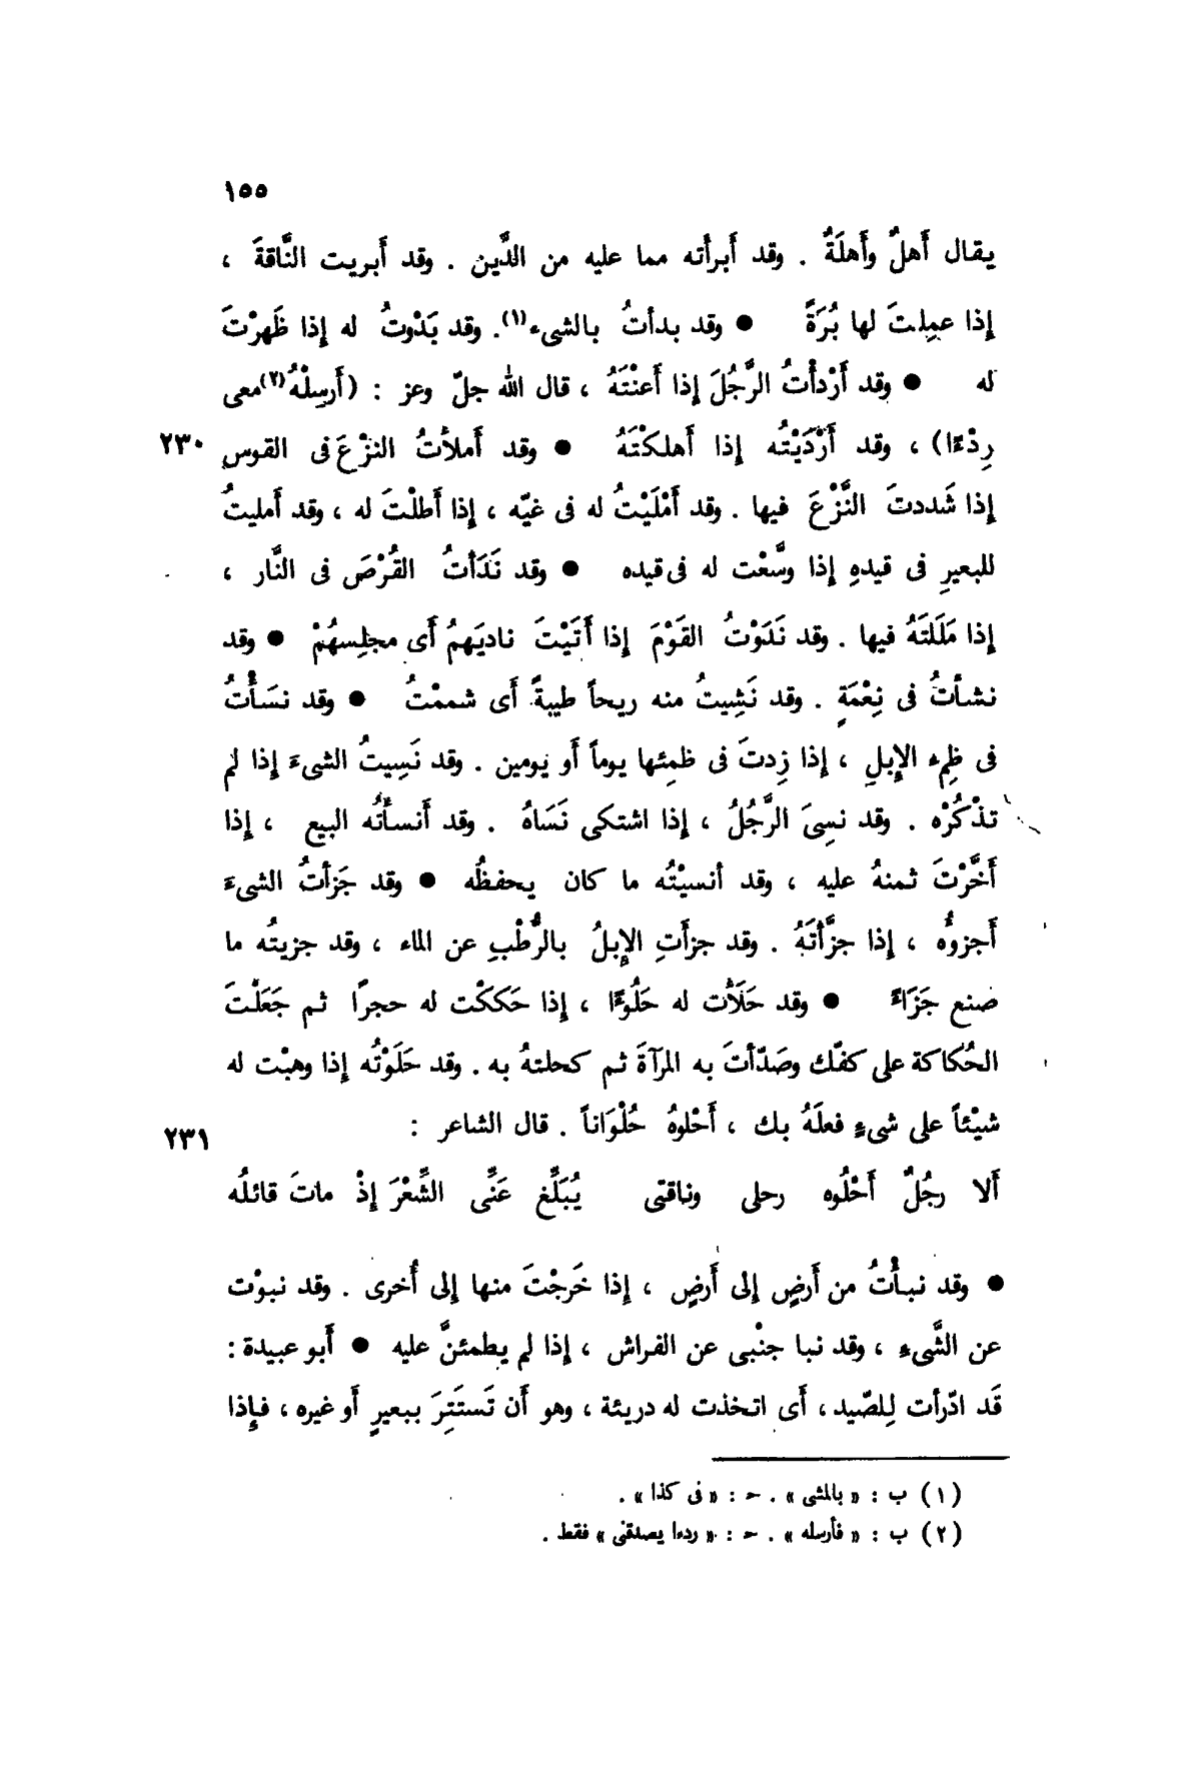 ١٥٥
يقال أَهلٌ وأَهلَةٌ . وقد أَبرأته مما عليه من الدَّين . وقد أَبريت النَّاقةَ ،
إذا عمِلتَ لها بُرَةً ● وقد بدأتُ بالشىء(١). وقد بَدْوتُ له إذا ظَهرْتَ
له ● وقد أَرْدأْتُ الرَّجُلَ إذا أَعنْتَهُ ، قال الله جلّ وعز : (أَرسِلْهُ(٢)معى
رِدْءًا) ، وقد أَرْدَيْتُه إذا أَهلكْتَهُ ● وقد أَملأْتُ النزْعَ فى القوس ٢٣٠
إذا شَددتَ النَّزْعَ فيها . وقد أَمْلَيْتُ له فى غيّه ، إذا أَطلْتَ له ، وقد أَمليتُ
للبعيرِ فى قيدهِ إذا وسَّعْت له فى قيده ● وقد نَدَأتُ القُرْصَ فى النَّار ،
إذا مَلَلتَهُ فيها . وقد نَدَوْتُ القَوْمَ إذا أَتَيْتَ ناديَهمُ أَى مجلِسهُمْ ● وقد
نشأتُ فى نِعْمَةٍ . وقد نَشِيتُ منه ريحاً طيبةً أَى شممْتُ ● وقد نسَأْتُ
فى ظِمءِ الإبلِ ، إذا زِدتَ فى ظمِئها يوماً أَو يومين . وقد نَسِيتُ الشىءَ إذا لم
تذْكُرْه . وقد نسِىَ الرَّجُلُ ، إذا اشتكى نَسَاهُ . وقد أَنسأْتُه البيع ، إذا
أَخَّرْتَ ثمنهُ عليه ، وقد أنسيْتُه ما كان يحفظُه ● وقد جَزأتُ الشىءَ
أَجزوُه ، إذا جزَّأتَهُ . وقد جزأَتِ الإبلُ بالرُّطْبِ عن الماء ، وقد جزيتُه ما
صنع جَزَاءً ● وقد حَلَأْت له حَلُوءًا ، إذا حَككْت له حجرًا ثم جَعَلْتَ
الحُكاكة على كفّك وصَدّأتَ به المرآةَ ثم كحلتهُ به . وقد حَلَوْتُه إذا وهبْت له
شيْئاً على شىءٍ فعلَهُ بك ، أَحْلوهُ حُلْوَاناً . قال الشاعر : ٢٣١
أَلا رجُلٌ أَحْلُوه رحلى وناقتى يُبَلِّغ عَنِّى الشِّعْرَ إذْ ماتَ قائلُه
● وقد نبأْتُ من أَرضٍ إلى أَرضٍ ، إذا خَرجْتَ منها إلى أُخرى . وقد نبوْت
عن الشَّىءِ ، وقد نبا جنْبى عن الفراش ، إذا لم يطمئنَّ عليه ● أَبو عبيدة :
قَد ادّرأت لِلصّيد ، أَى اتخذت له دريئة ، وهو أَن تَستَتِرَ ببعيرٍ أَو غيره ، فإذا
(١) ب : « بالمشى » . حـ : « فى كذا » .
(٢) ب : « فأرسله » . حـ : « ردءا يصدقنى » فقط .